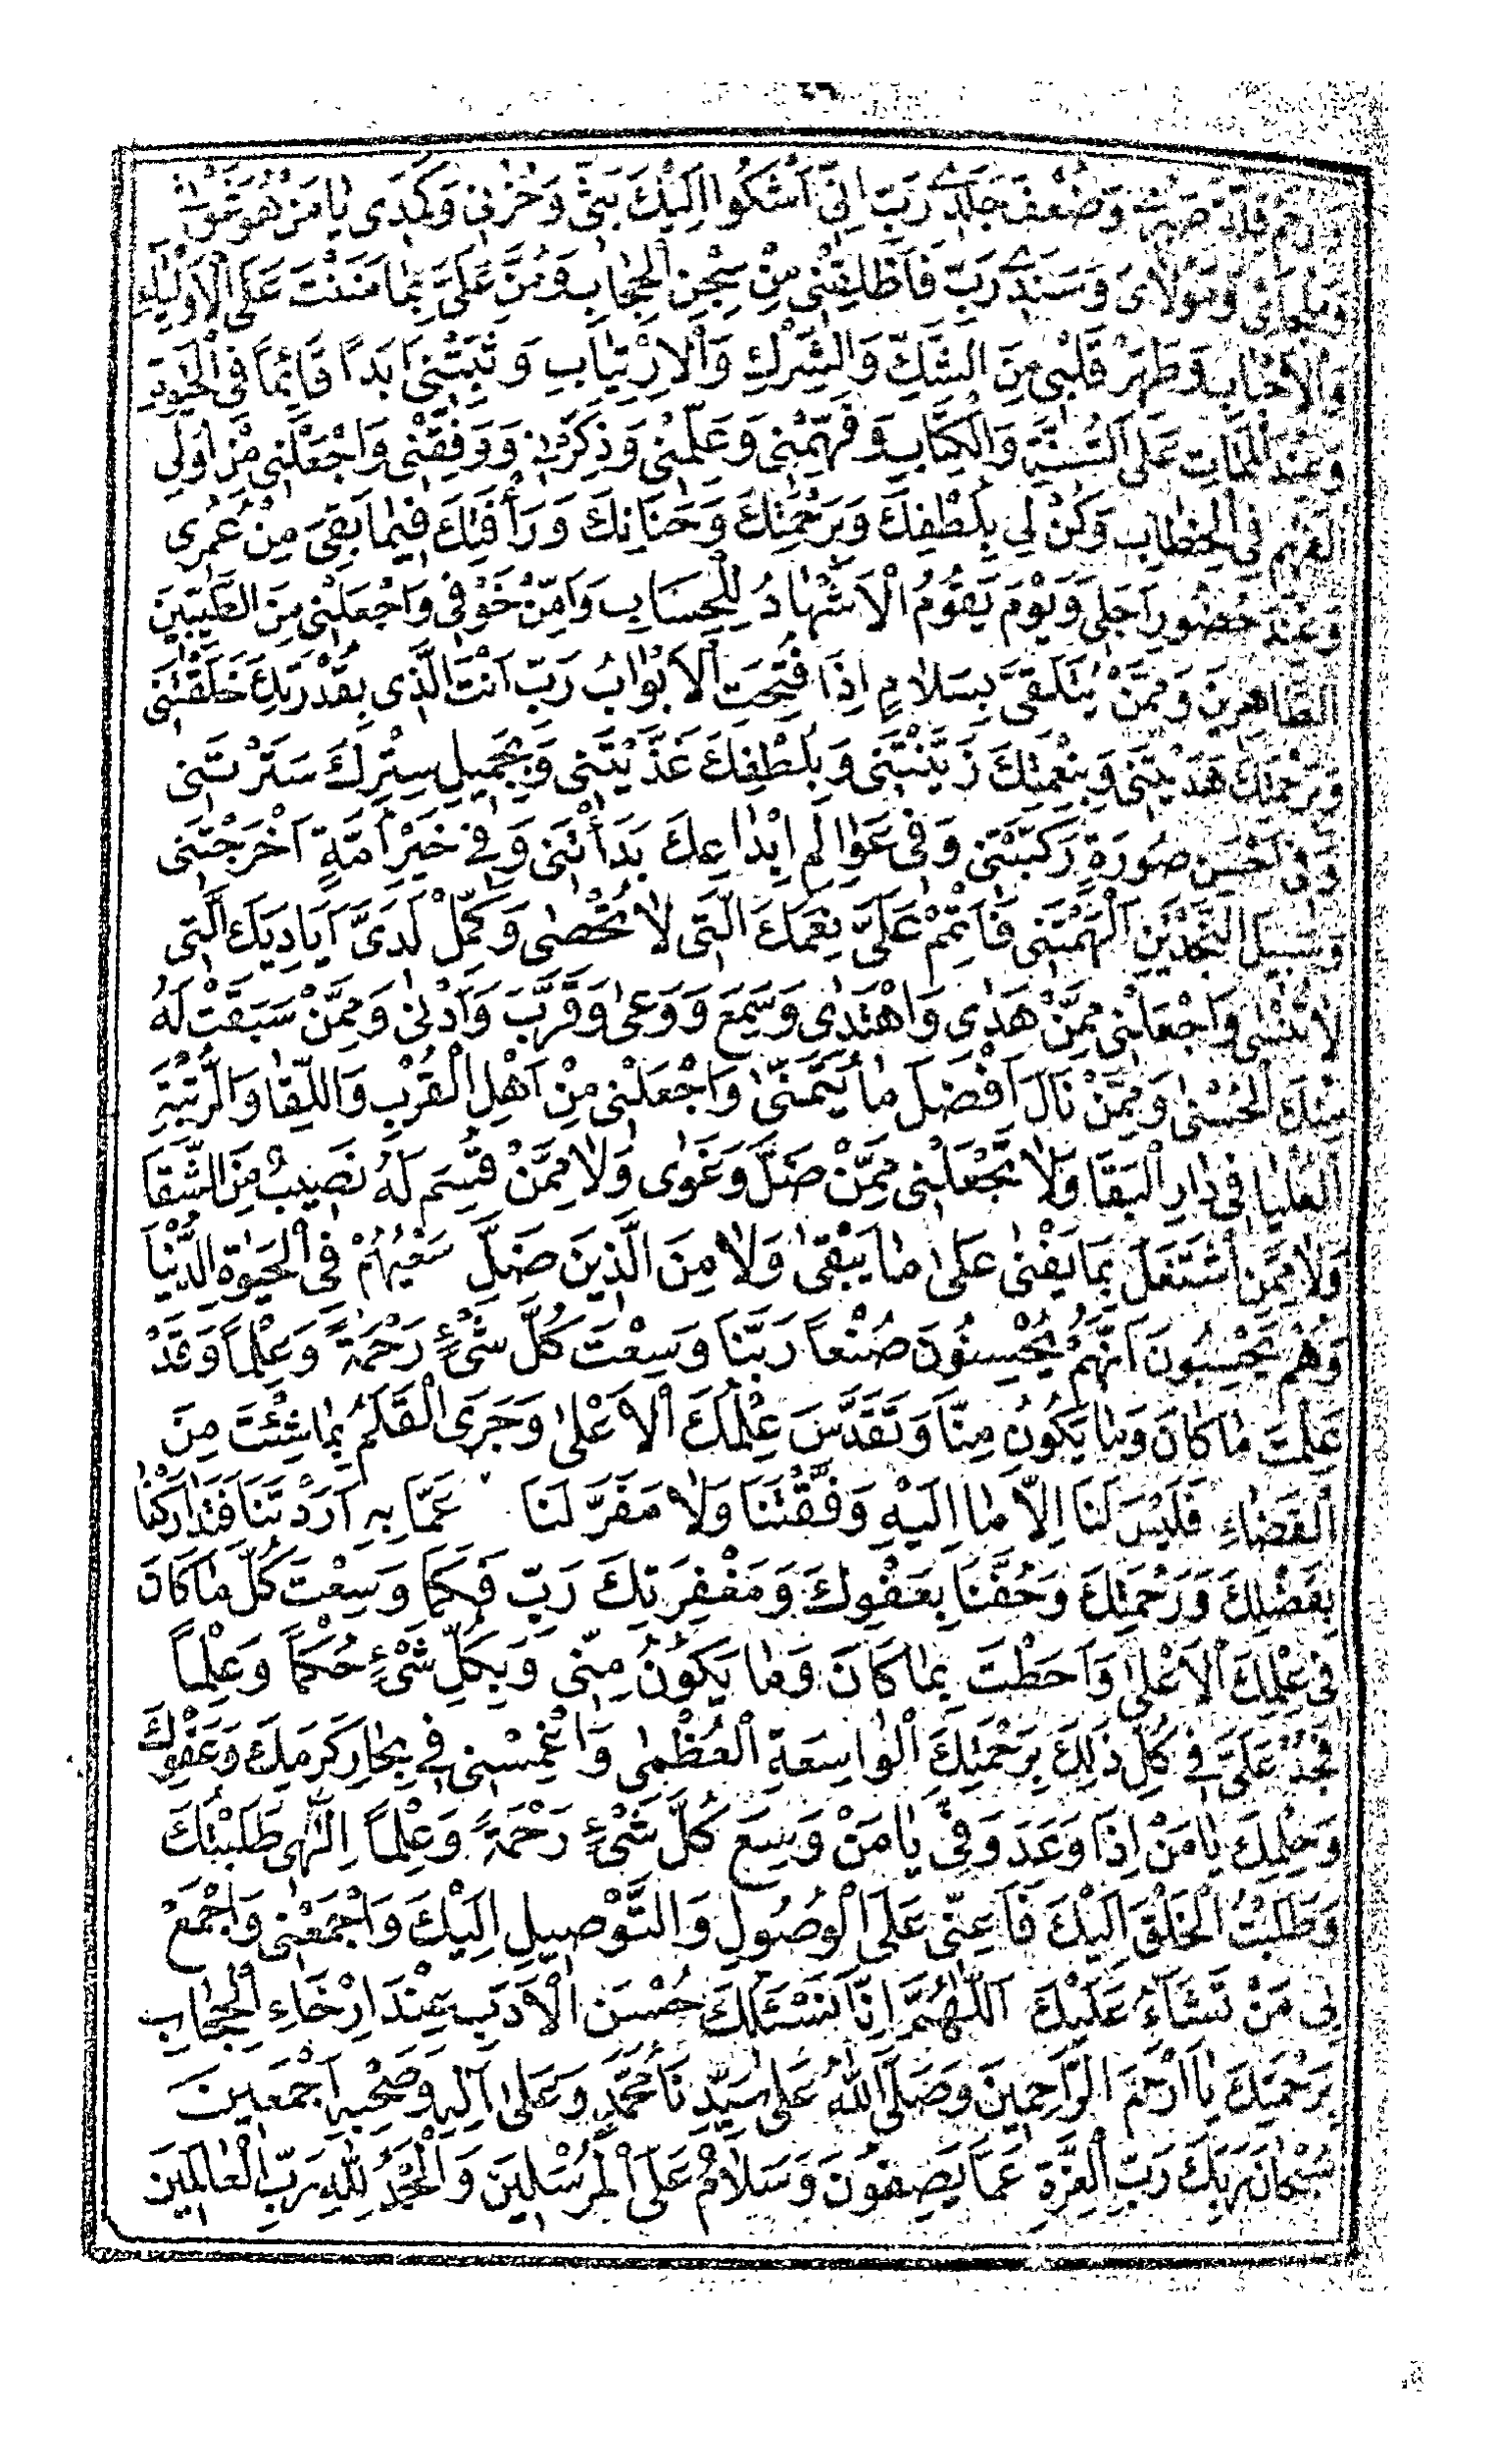 وَارْحَمْ قِلَّةَ صَبْرِى وَضُعْفَ جَلَدِى رَبِّ اِنِّى اَشْكُوا اِلَيْكَ بَثِّى وَحُزْنِى وَكَمَدِى يَا مَنْ هُوَ غَوْثِى
وَمَلْجَائِى وَمَوْلَاىَ وَسَنَدِى رَبِّ فَاَطْلِقْنِى مِنْ سِجْنِ الْحِجَابِ وَمُنَّ عَلَىَّ بِمَا مَنَنْتَ عَلَى الْاَوْلِيَاءِ
وَالْاَحْبَابِ وَطَهِّرْ قَلْبِى مِنَ الشَّكِّ وَالشِّرْكِ وَالْاِرْتِيَابِ وَثَبِّتْنِى اَبَدًا قَائِمًا فِى الْحَيٰوةِ
وَعِنْدَ الْمَمَاتِ عَلَى السُّنَّةِ وَالْكِتَابِ وَفَهِّمْنِى وَعَلِّمْنِى وَذَكِّرْنِى وَوَفِّقْنِى وَاجْعَلْنِى مِنْ اُولِى
الْفَهْمِ فِى الْخِطَابِ وَكُنْ لِى بِلُطْفِكَ وَبِرَحْمَتِكَ وَحَنَانِكَ وَرَأْفَتِكَ فِيمَا بَقِىَ مِنْ عُمْرِى
وَعِنْدَ حُضُورِ اَجَلِى وَيَوْمَ يَقُومُ الْاَشْهَادُ لِلْحِسَابِ وَاٰمِنْ خَوْفِى وَاجْعَلْنِى مِنَ الطَّيِّبِينَ
الطَّاهِرِينَ وَمِمَّنْ يُتَلَقَّى بِسَلَامٍ اِذَا فُتِحَتِ الْاَبْوَابُ رَبِّ اَنْتَ الَّذِى بِقُدْرَتِكَ خَلَقْتَنِى
وَبِرَحْمَتِكَ هَدَيْتَنِى وَبِنِعْمَتِكَ رَبَّيْتَنِى وَبِلُطْفِكَ غَذَّيْتَنِى وَبِجَمِيلِ سِتْرِكَ سَتَرْتَنِى
وَفِى اَحْسَنِ صُورَةٍ رَكَّبْتَنِى وَفِى عَوَالِمِ اِبْدَاعِكَ بَدَأْتَنِى وَفِى خَيْرِ اُمَّةٍ اَخْرَجْتَنِى
وَسَبِيلَ النَّجْدَيْنِ اَلْهَمْتَنِى فَاَتْمِمْ عَلَىَّ نِعَمَكَ الَّتِى لَا تُحْصٰى وَكَمِّلْ لَدَىَّ اَيَادِيَكَ الَّتِى
لَا تُنْسٰى وَاجْعَلْنِى مِمَّنْ هَدٰى وَاهْتَدٰى وَسَمِعَ وَوَعٰى وَقَرَّبَ وَاَدْنٰى وَمِمَّنْ سَبَقَتْ لَهُ
مِنْكَ الْحُسْنٰى وَمِمَّنْ نَالَ اَفْضَلَ مَا يُتَمَنّٰى وَاجْعَلْنِى مِنْ اَهْلِ الْقُرْبِ وَاللِّقَا وَالرُّتْبَةِ
الْعُلْيَا فِى دَارِ الْبَقَا وَلَا تَجْعَلْنِى مِمَّنْ ضَلَّ وَغَوٰى وَلَا مِمَّنْ قُسِمَ لَهُ نَصِيبٌ مِنَ الشَّقَا
وَلَا مِمَّنِ اشْتَغَلَ بِمَا يَفْنٰى عَلٰى مَا يَبْقٰى وَلَا مِنَ الَّذِينَ ضَلَّ سَعْيُهُمْ فِى الْحَيٰوةِ الدُّنْيَا
وَهُمْ يَحْسَبُونَ اَنَّهُمْ يُحْسِنُونَ صُنْعًا رَبَّنَا وَسِعْتَ كُلَّ شَىْءٍ رَحْمَةً وَعِلْمًا وَقَدْ
عَلِمْتَ مَا كَانَ وَمَا يَكُونُ مِنَّا وَتَقَدَّسَ عِلْمُكَ الْاَعْلٰى وَجَرَى الْقَلَمُ بِمَا شِئْتَ مِنَ
الْقَضَاءِ فَلَيْسَ لَنَا اِلَّا مَا اِلَيْهِ وَفَّقْتَنَا وَلَا مَفَرَّ لَنَا عَمَّا بِهِ اَرَدْتَنَا فَتَدَارَكْنَا
بِفَضْلِكَ وَرَحْمَتِكَ وَحُفَّنَا بِعَفْوِكَ وَمَغْفِرَتِكَ رَبِّ فَكَمَا وَسِعْتَ كُلَّ مَا كَانَ
فِى عِلْمِكَ الْاَعْلٰى وَاَحَطْتَ بِمَا كَانَ وَمَا يَكُونُ مِنِّى وَبِكُلِّ شَىْءٍ حُكْمًا وَعِلْمًا
فَجُدْ عَلَىَّ فِى كُلِّ ذٰلِكَ بِرَحْمَتِكَ الْوَاسِعَةِ الْعُظْمٰى وَاغْمِسْنِى فِى بِحَارِ كَرَمِكَ وَعَفْوِكَ
وَحِلْمِكَ يَا مَنْ اِذَا وَعَدَ وَفّٰى يَا مَنْ وَسِعَ كُلَّ شَىْءٍ رَحْمَةً وَعِلْمًا اِلٰهِى طَلَبْتُكَ
وَطَلَبْتُ الْخَلْقَ اِلَيْكَ فَاَعِنِّى عَلَى الْوُصُولِ وَالتَّوْصِيلِ اِلَيْكَ وَاجْمَعْنِى وَاجْمَعْ
بِى مَنْ تَشَاءُ عَلَيْكَ اَللّٰهُمَّ اِنَّا نَسْئَلُكَ حُسْنَ الْاَدَبِ عِنْدَ اِرْخَاءِ الْحِجَابِ
بِرَحْمَتِكَ يَا اَرْحَمَ الرَّاحِمِينَ وَصَلَّى اللّٰهُ عَلٰى سَيِّدِنَا مُحَمَّدٍ وَعَلٰى اٰلِهِ وَصَحْبِهِ اَجْمَعِينَ
سُبْحَانَ رَبِّكَ رَبِّ الْعِزَّةِ عَمَّا يَصِفُونَ وَسَلَامٌ عَلَى الْمُرْسَلِينَ وَالْحَمْدُ لِلّٰهِ رَبِّ الْعَالَمِينَ